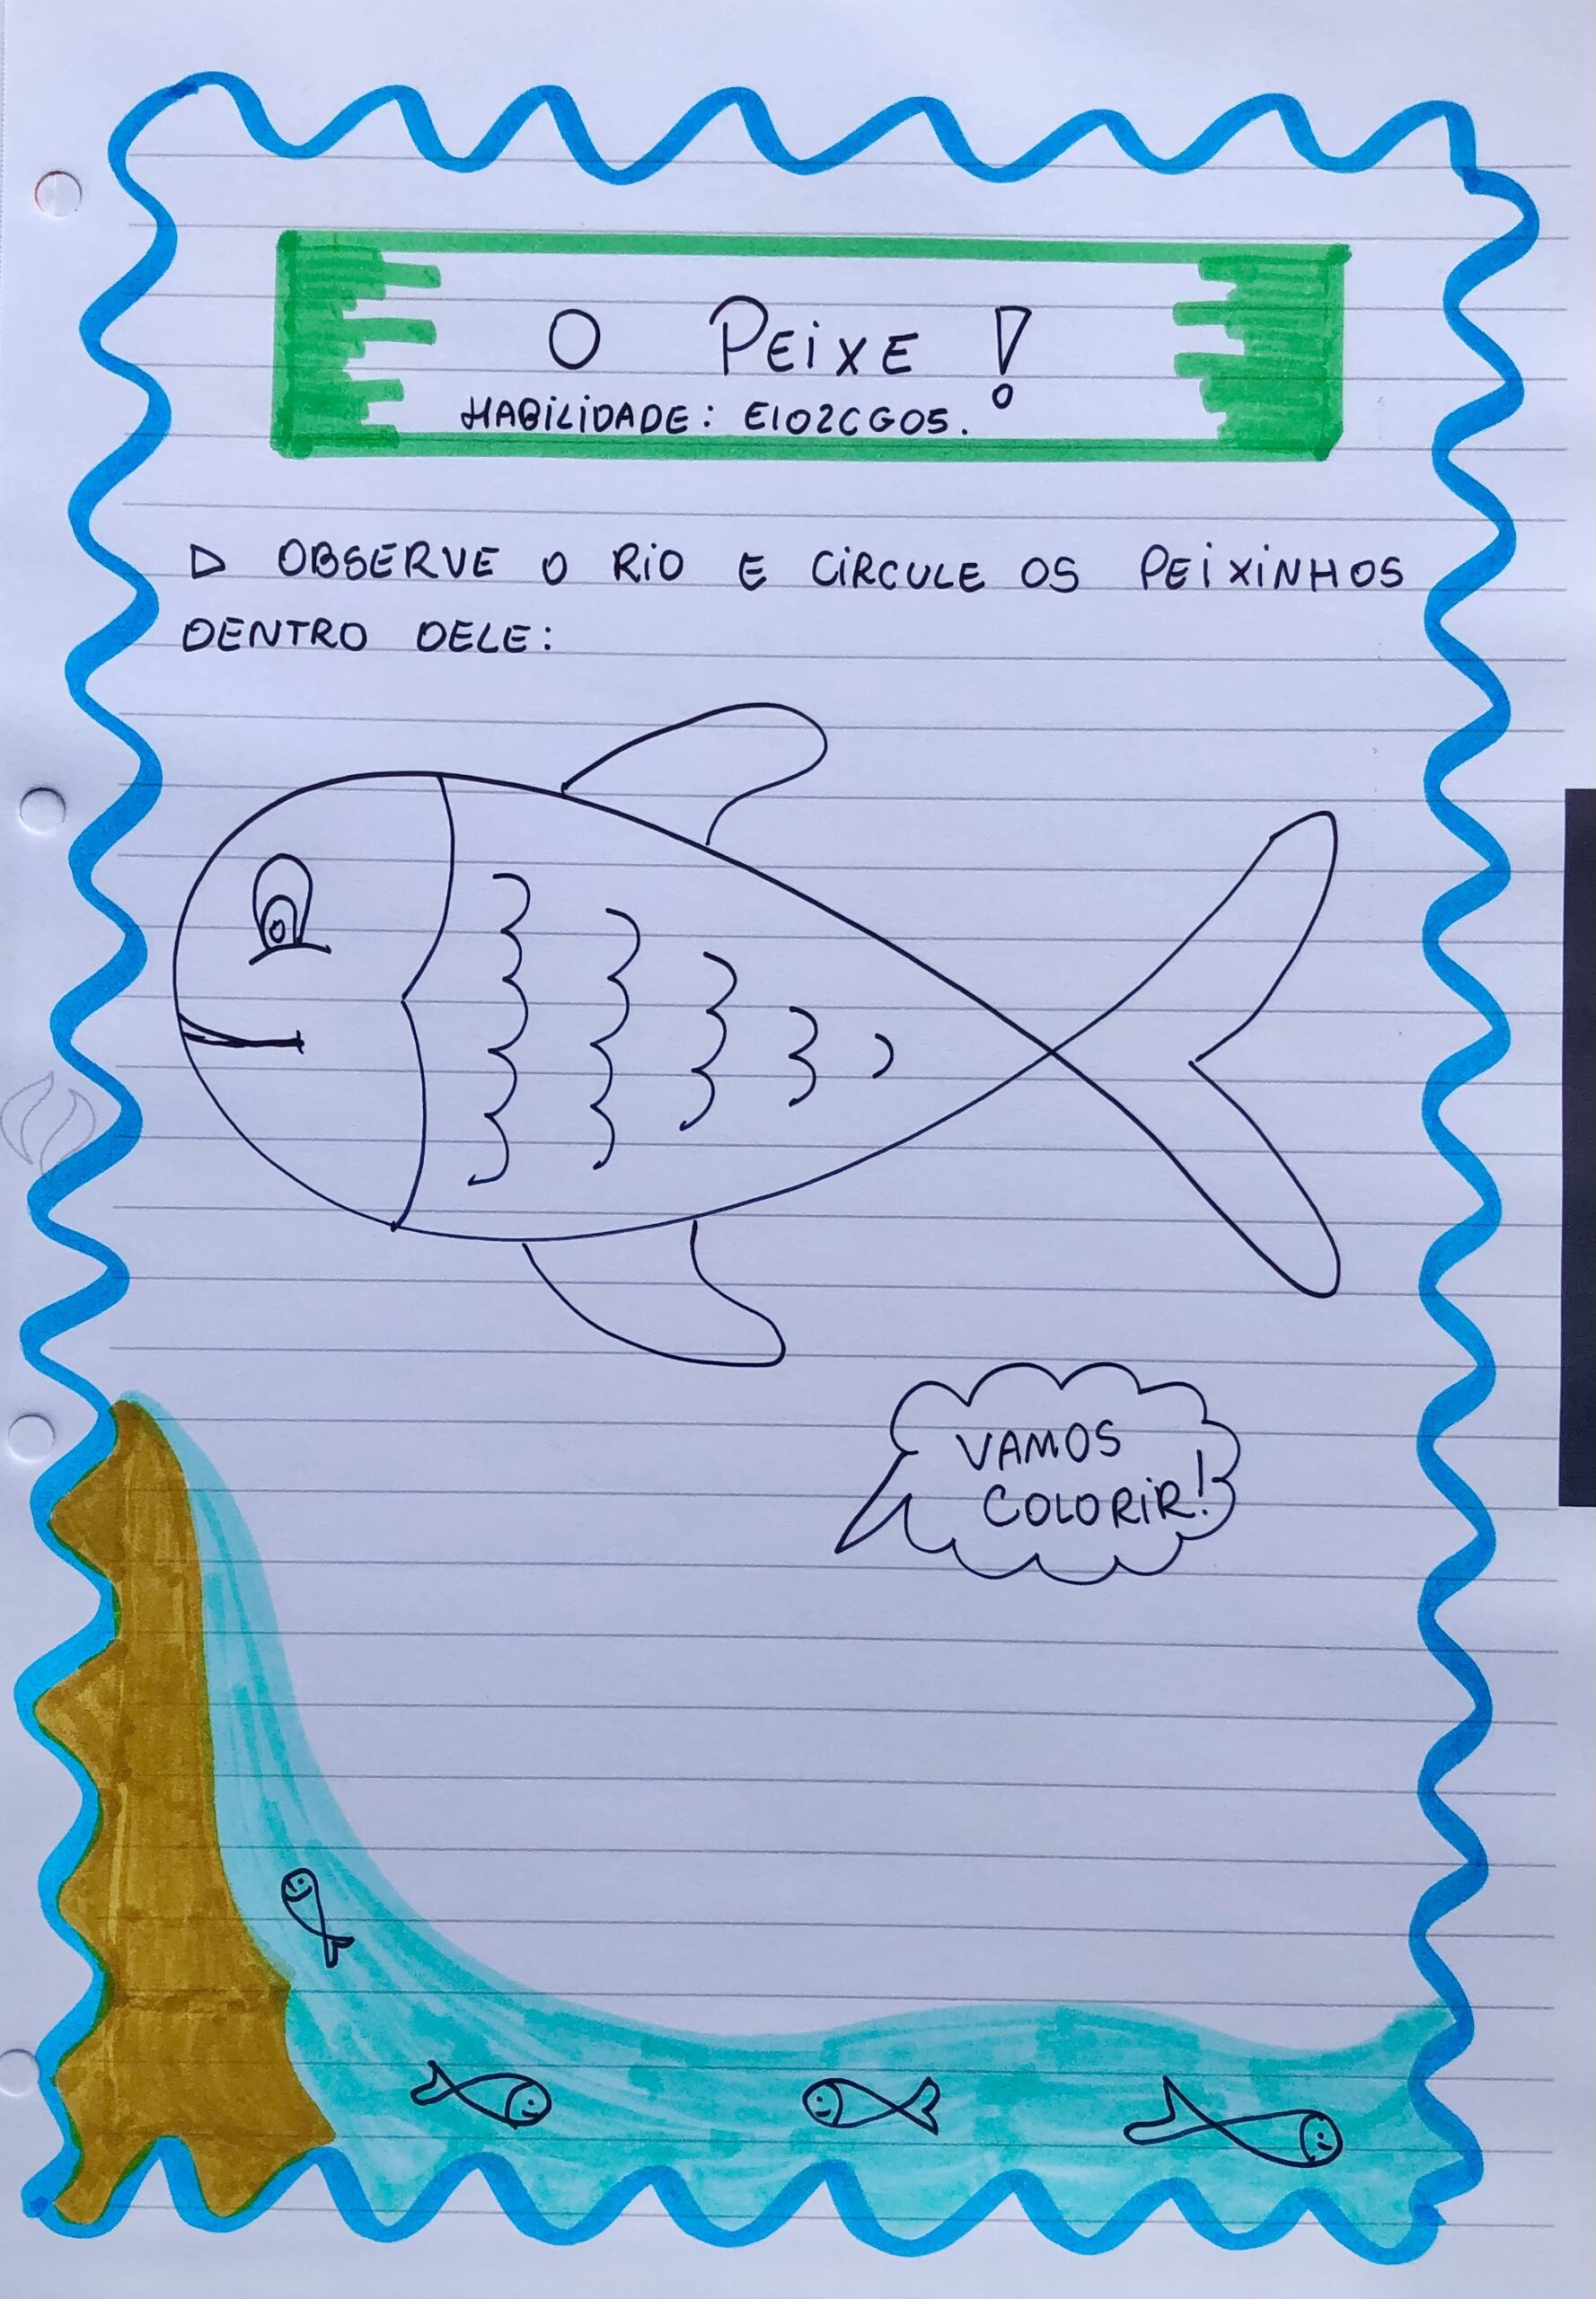 O PEIXE!
HABILIDADE: EI02CG05.
OBSERVE O RIO E CIRCULE OS PEIXINHOS
DENTRO DELE:
VAMOS
COLORIR!